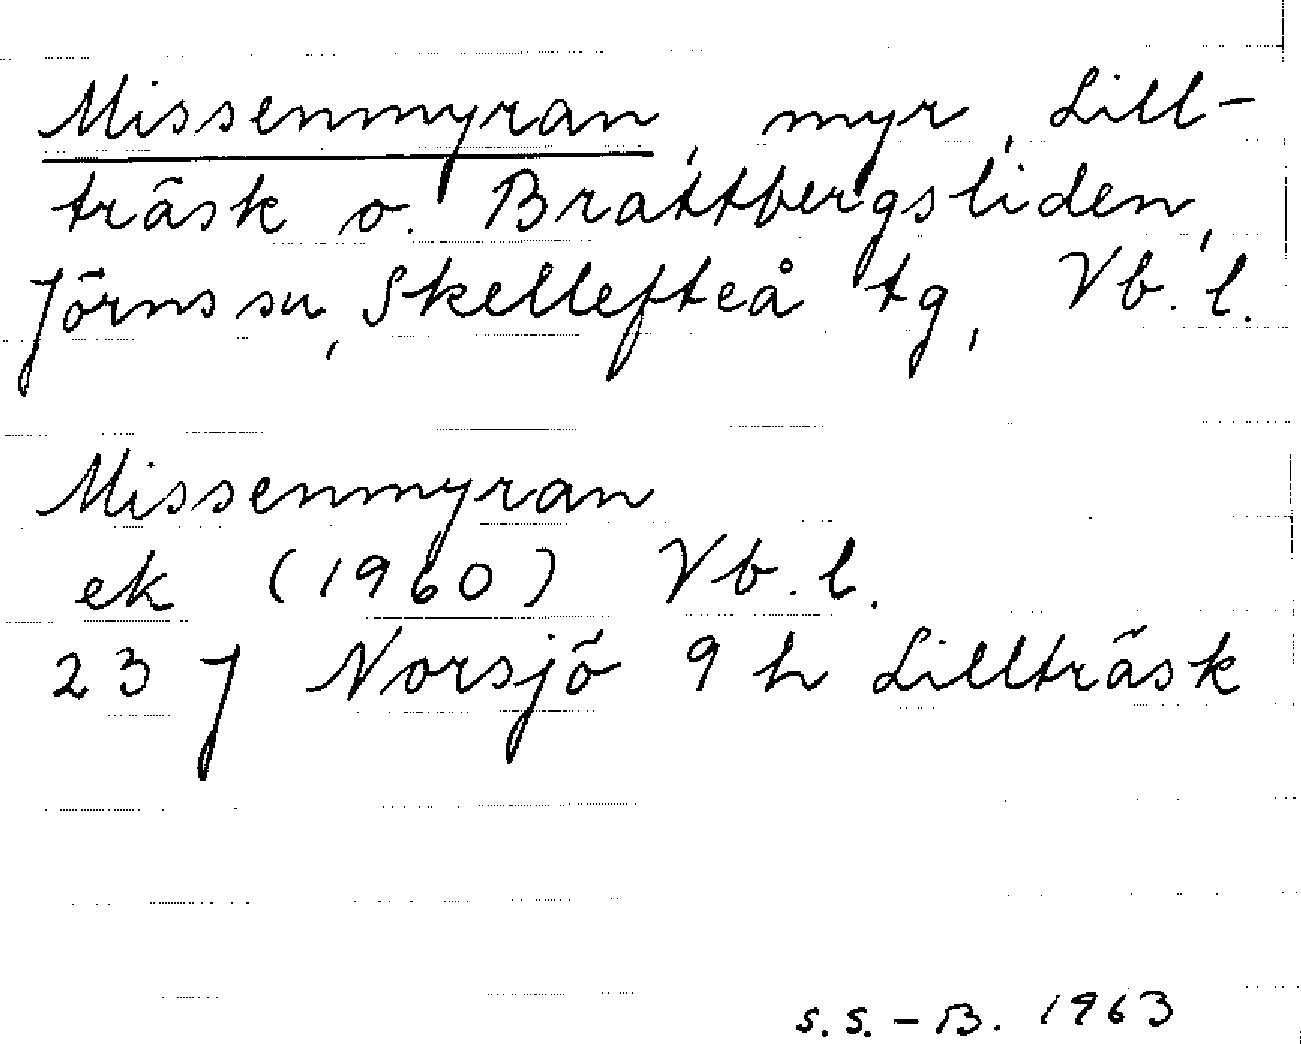 Missenmyran, myr, Lill-
träsk o. Brattbergsliden,
Jörns sn, Skellefteå tg, Vb. l.
Missenmyran
ek (1960) Vb. l.
23 J Norsjö 9 h Lillträsk
S. S. - B. 1963